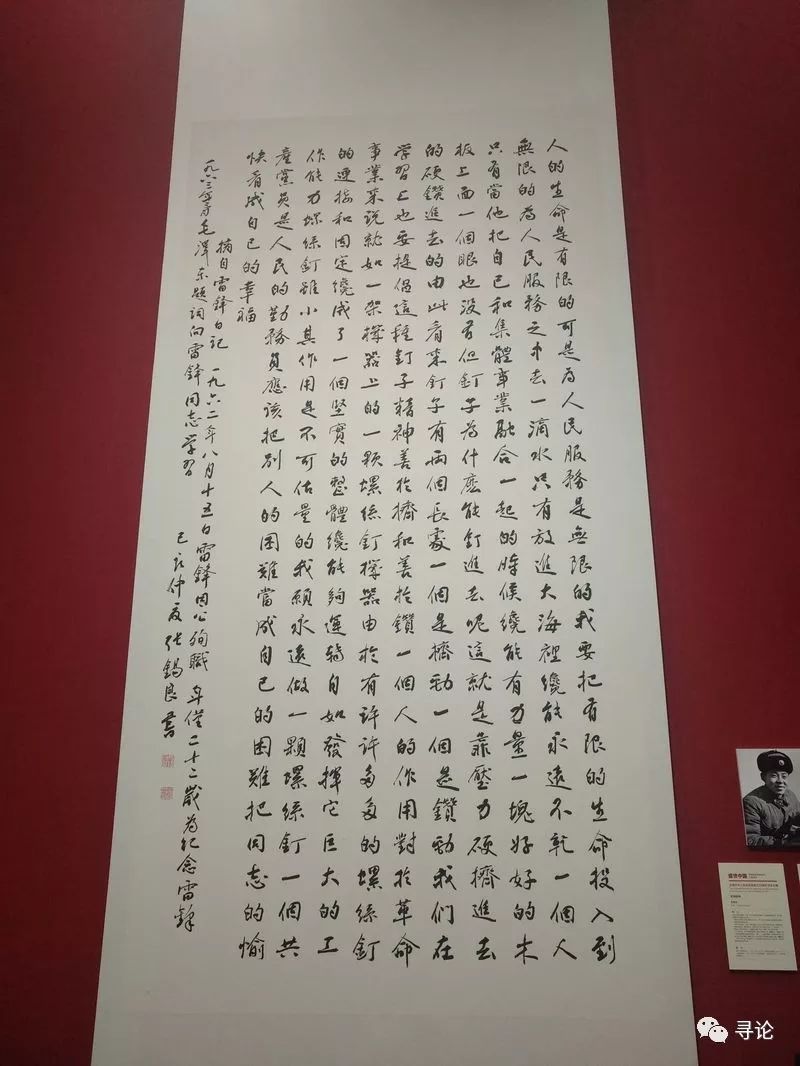 人的生命是有限的可是为人民服務是無限的我要把有限的生命投入到
無限的為人民服務之中去一滴水只有放進大海裡纔能永遠不乾一個人
只有當他把自己和集體事業融合一起的時候纔能有力量一塊好好的木
板上面一個眼也没有但釘子為什麽能釘進去呢這就是靠壓力硬擠進去
的硬鑽進去的由此看来釘子有兩個長處一個是擠勁一個是鑽勁我们在
学習上也要提倡這種釘子精神善於擠和善於鑽一個人的作用對於革命
事業来説就如一架機器上的一顆螺絲釘機器由於有許許多多的螺絲釘
的連接和固定纔成了一個堅實的整體纔能夠運轉自如發揮它巨大的工
作能力螺絲釘雖小其作用是不可估量的我願永遠做一顆螺絲釘一個共
産黨員是人民的勤務員應該把别人的困難當成自己的困難把同志的愉
快看成自己的幸福
摘自雷鋒日記 一九六二年八月十五日雷鋒因公殉職 年僅二十二歲為纪念雷鋒
一九六三年毛澤东題詞向雷鋒同志学習
己亥仲夏張錫良書
寻论